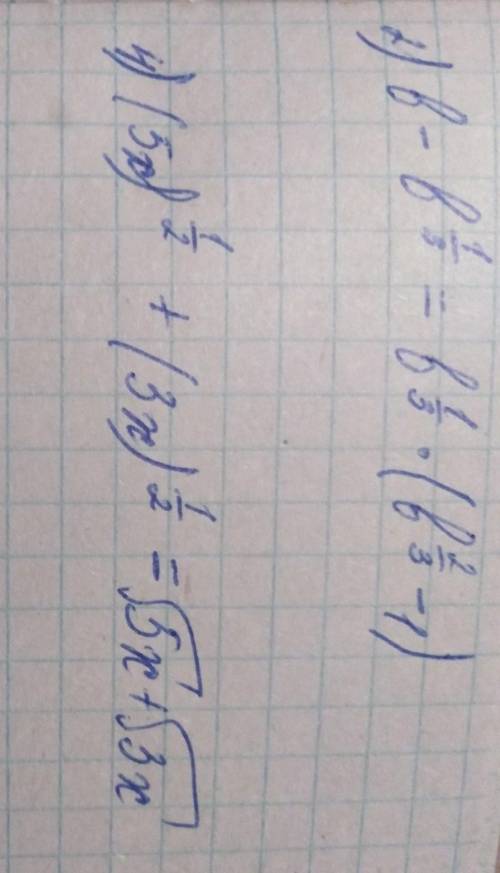 2) b - b^{1/3} = b^{1/3} · (b^{2/3} - 1)
4) (5x)^{1/2} + (3x)^{1/2} = √5x + √3x